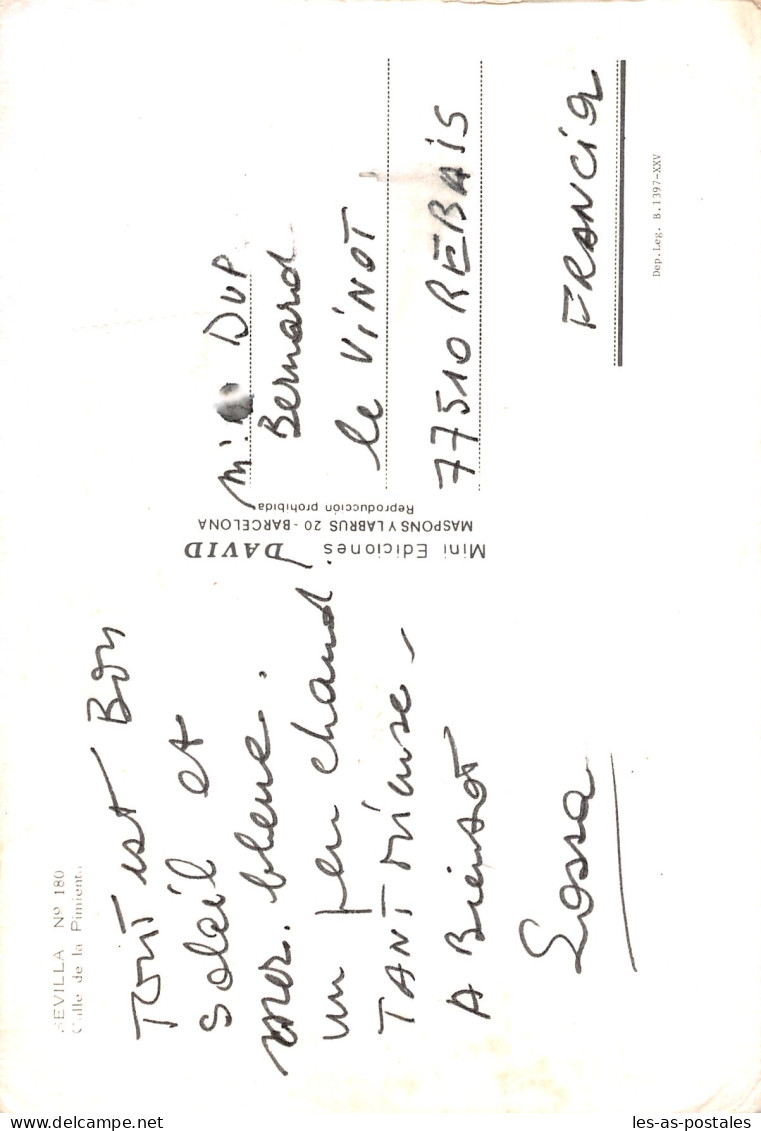 SEVILLA Nº 180
Calle de la Pimienta
Tout est Bon
Soleil et
mer. bleue.
un peu chaud!
TANT Mieuse -
A Bientôt
Lossa
Mini Ediciones DAVID
MASPONS Y LABRUS 20 - BARCELONA
Reproducción prohibida
DUP
Bernard
le VINOT
77510 REBAIS
FRANCIA
Dep. Leg. B. 1397-XXV
les-as-postales.com